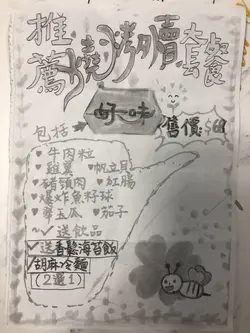 推薦燒烤外賣套餐
好味
售價:$68
包括
♥牛肉粒
♥雞翼 ♥帆立貝
♥豬頸肉 ♥紅腸
♥爆炸魚籽球
♥粟玉瓜 ♥茄子
~✓送飲品
✓送香鬆海苔飯
✓胡麻冷麵
(2選1)